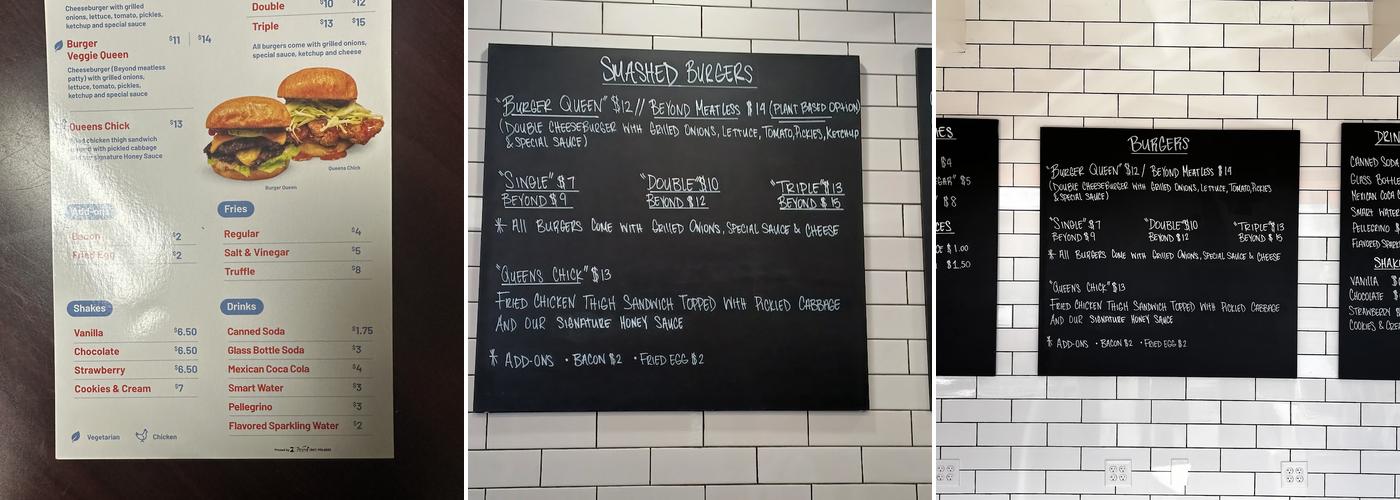 Cheeseburger with grilled
onions, lettuce, tomato, pickles,
ketchup and special sauce
Burger $11 $14
Veggie Queen
Cheeseburger (Beyond meatless
patty) with grilled onions,
lettuce, tomato, pickles,
ketchup and special sauce
Queens Chick $13
Fried chicken thigh sandwich
topped with pickled cabbage
and our signature Honey Sauce
Double $10 $12
Triple $13 $15
All burgers come with grilled onions,
special sauce, ketchup and cheese
Queens Chick
Burger Queen
Add-ons
Bacon $2
Fried Egg $2
Fries
Regular $4
Salt & Vinegar $5
Truffle $8
Shakes
Vanilla $6.50
Chocolate $6.50
Strawberry $6.50
Cookies & Cream $7
Drinks
Canned Soda $1.75
Glass Bottle Soda $3
Mexican Coca Cola $4
Smart Water $3
Pellegrino $3
Flavored Sparkling Water $2
Vegetarian Chicken
SMASHED BURGERS
"BURGER QUEEN" $12 // BEYOND MEATLESS $14 (PLANT BASED OPTION)
(DOUBLE CHEESEBURGER WITH GRILLED ONIONS, LETTUCE, TOMATO, PICKLES, KETCHUP
& SPECIAL SAUCE)
"SINGLE" $7 "DOUBLE" $10 "TRIPLE" $13
BEYOND $9 BEYOND $12 BEYOND $15
* ALL BURGERS COME WITH GRILLED ONIONS, SPECIAL SAUCE & CHEESE
"QUEENS CHICK" $13
FRIED CHICKEN THIGH SANDWICH TOPPED WITH PICKLED CABBAGE
AND OUR SIGNATURE HONEY SAUCE
* ADD-ONS • BACON $2 • FRIED EGG $2
$4
$5
$8
$1.00
$1.50
BURGERS
"BURGER QUEEN" $12 / BEYOND MEATLESS $14
(DOUBLE CHEESEBURGER WITH GRILLED ONIONS, LETTUCE, TOMATO, PICKLES
& SPECIAL SAUCE)
"SINGLE" $7 "DOUBLE" $10 "TRIPLE" $13
BEYOND $9 BEYOND $12 BEYOND $15
* ALL BURGERS COME WITH GRILLED ONIONS, SPECIAL SAUCE & CHEESE
"QUEENS CHICK" $13
FRIED CHICKEN THIGH SANDWICH TOPPED WITH PICKLED CABBAGE
AND OUR SIGNATURE HONEY SAUCE
* ADD-ONS • BACON $2 • FRIED EGG $2
DRIN
CANNED SODA
GLASS BOTTLE
MEXICAN COCA
SMART WATER
PELLEGRINO
FLAVORED SPAR
SHAK
VANILLA
CHOCOLATE
STRAWBERRY
COOKIES & CRE